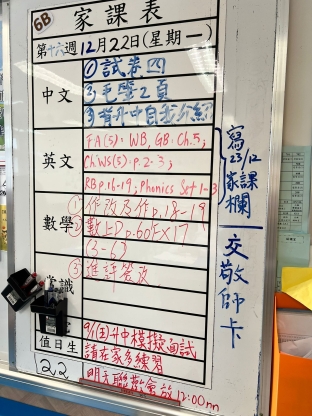 6B
家課表
第十六週12月22日(星期一)
中文
①試卷四
②毛筆2頁
③背升中自我介紹
英文
FA(5): WB, GB: Ch.5;
Ch.WS(5): p.2-3;
RB p.16-19; Phonics Set 1-3
數學
①作改及作p.18-19
②數上D p.60 EX17
(3-6)
常識
③進評簽改
9/1(五)升中模擬面試
值日生
請在家多練習
22
明天聯歡會放12:00nn
寫23/12家課欄
交敬師卡